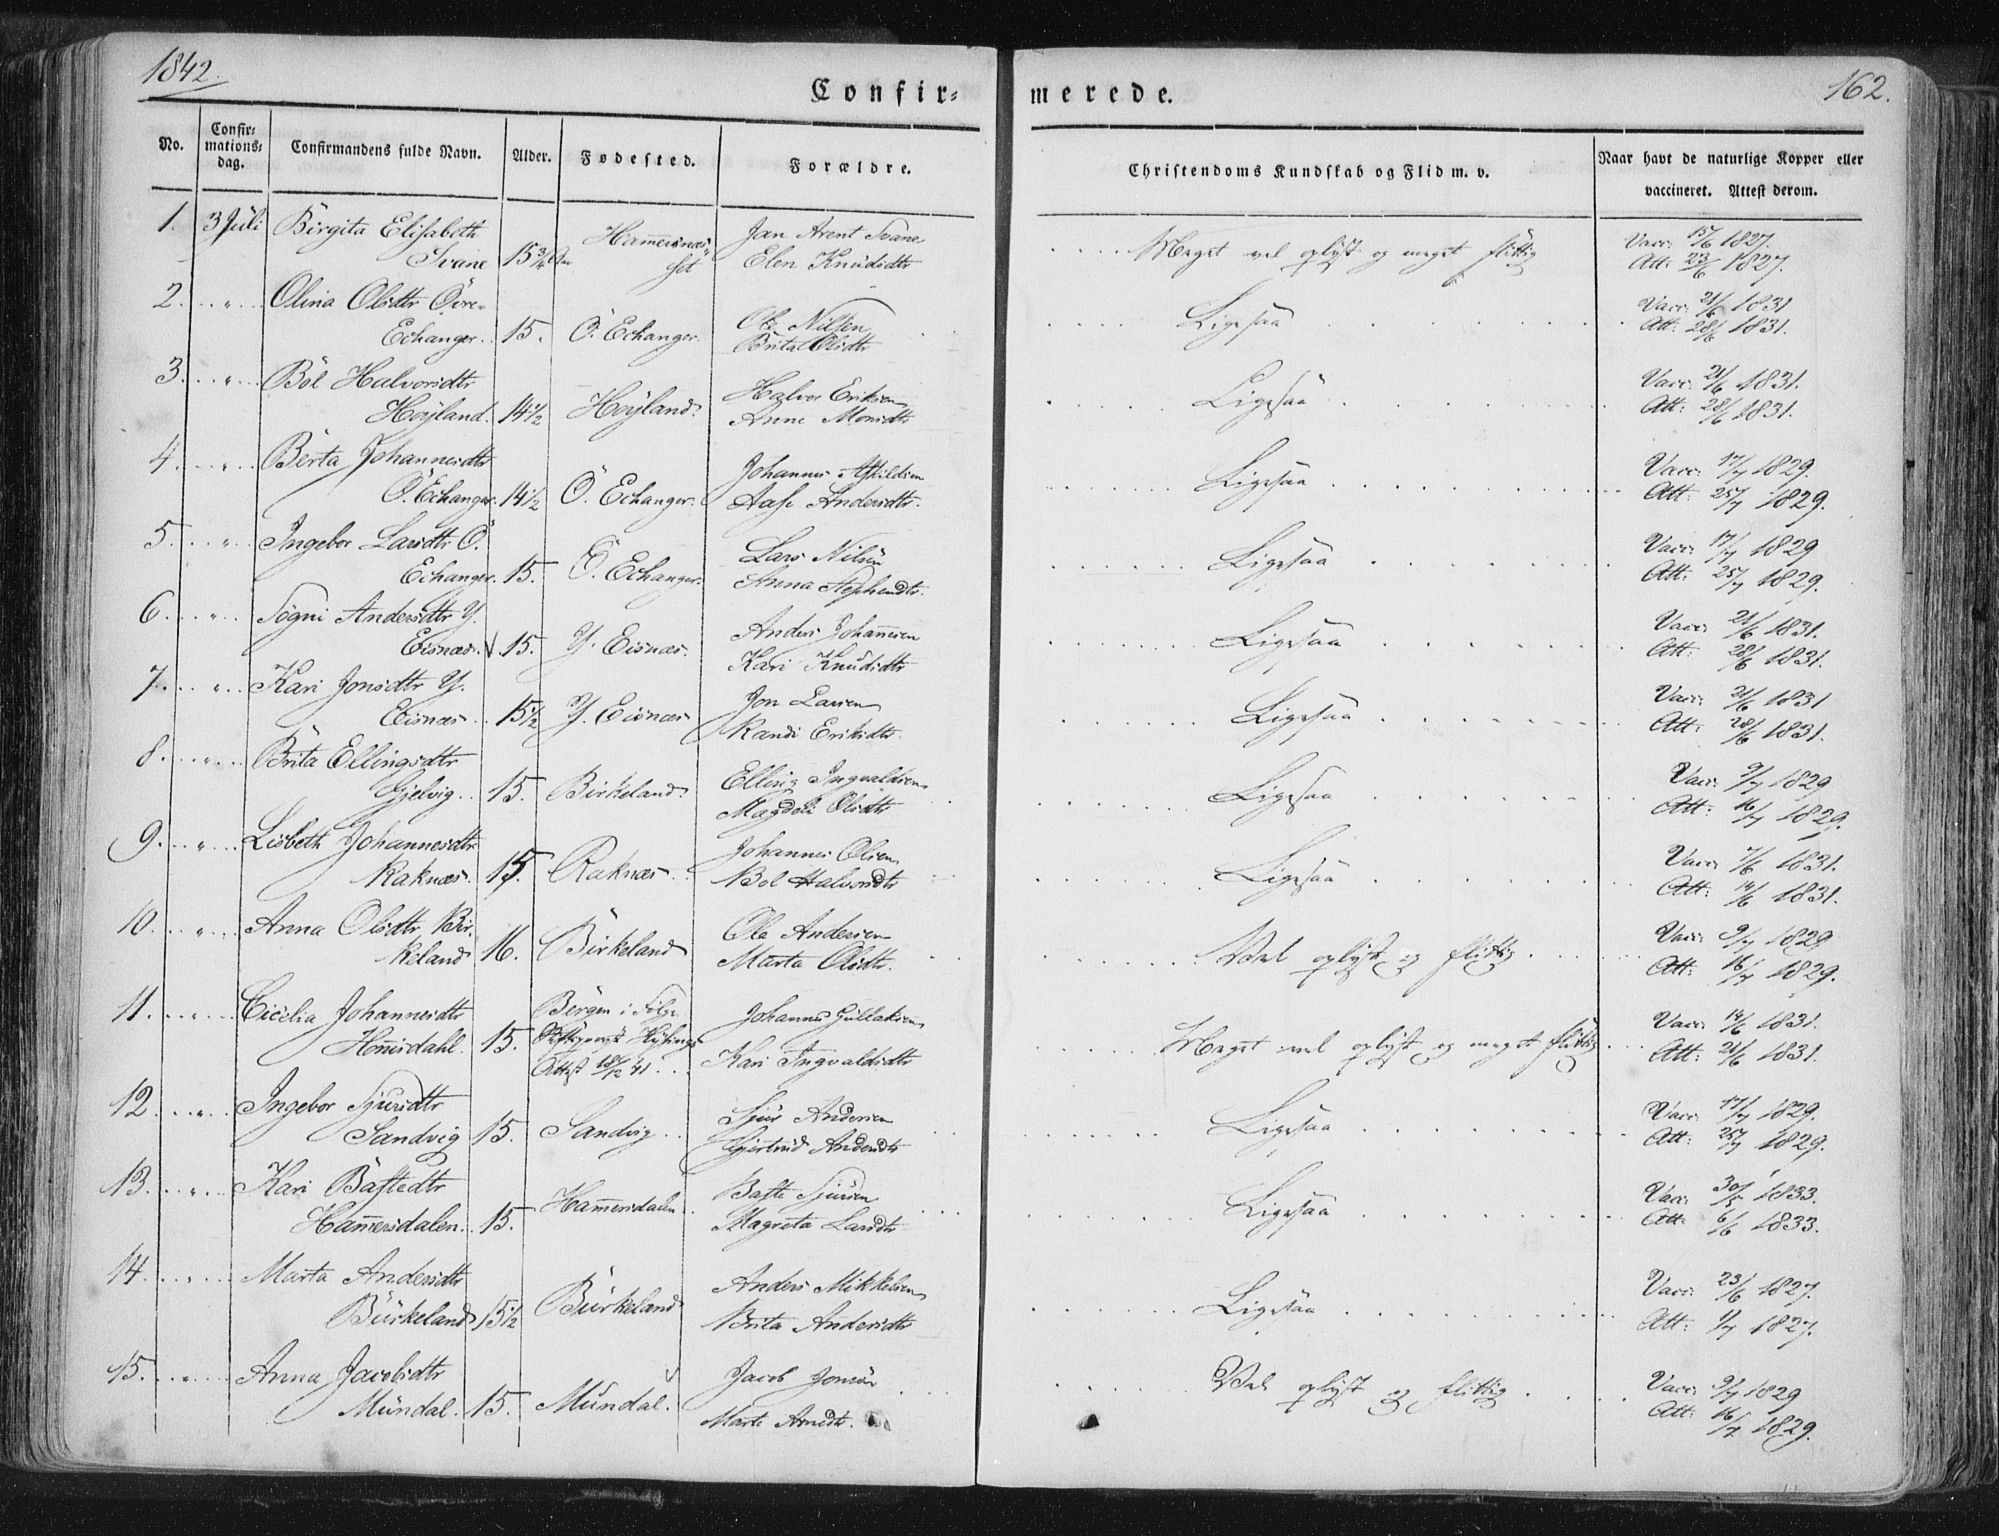 1842.
Confir-
merede.
162.
No.
Confir-
mations-
dag.
Confirmandens fulde Navn.
Alder.
Fødested.
Forældre.
Christendoms Kundskab og Flid m. v.
Naar havt de naturlige Kopper eller
vaccineret. Attest derom.
1. 3 Juli Birgita Elisabeth Jan Arent Svane Vacc: 15/6 1827.
Svane 15 3/4 Hammersnæs- Elen Knudsdtr Meget vel oplyst og meget flittig Att: 23/6 1827.
2. " Olina Olsdtr Övre- Ole Nilsen Vacc: 21/6 1831
Echanger. 15. Ö. Echanger. Brita Olsdtr Ligesaa Att: 28/6 1831.
3. " Böl Halvorsdtr Halvor Eriksen Vacc: 21/6 1831.
Höyland. 14 1/2 Höyland. Anne Monsdtr Ligesaa Att: 28/6 1831.
4. " Berta Johannesdtr Johannes Vacc: 17/7 1829.
Ö. Echanger. 14 1/2 Ö. Echanger. Aase Andersdtr. Ligesaa Att: 25/7 1829.
5. " Ingebor Larsdtr Ö. Lars Nilsen Vacc: 17/7 1829
Echanger. 15. Ö. Echanger. Anna Stephensdtr. Ligesaa Att: 25/7 1829.
6. " Sögni Andersdtr Y. Anders Johannesen Vacc: 21/6 1831.
Eisnæs. 15. Y. Eisnæs. Kari Knudsdtr Ligesaa Att: 28/6 1831.
7. " Kari Jonsdtr Y. Jon Larsen Vacc: 21/6 1831
Eisnæs 15 1/2 Y. Eisnæs Randi Eriksdtr. Ligesaa Att: 28/6 1831.
8. " Brita Ellingsdtr Elling Ingvaldsen Vacc: 9/7 1829
Gjelvig. 15. Birkeland. Magdeli Olsdtr Ligesaa Att: 16/7 1829.
9. " Lisbeth Johannesdtr Johannes Olsen Vacc: 7/6 1831.
Raknæs. 15. Raknæs. Böl Halvorsdtr Ligesaa Att: 14/6 1831.
10. " Anna Olsdtr Bir- Ole Andersen Vacc: 9/7 1829
keland 16. Birkeland Marta Olsdtr. Vel oplyst og flittig. Att: 16/7 1829.
11. " Cicelia Johannesdtr Bergen i Følge Johannes Gullaksen Vacc: 14/6 1831.
Honisdahl. 15. Meget vel oplyst og meget flittig Att: 21/6 1831.
Attest 18/12 41. Kari Ingvaldsdtr
12. " Ingebor Sjursdtr Sjur Andersen Vacc: 17/7 1829.
Sandvig 15. Sandvig Gjertrud Andersdtr Ligesaa Att: 25/7 1829.
13. " Kari Bastedtr Baste Sjursen Vacc: 30/5 1833.
Hammersdalen. 15. Hammersdalen Magreta Larsdtr Ligesaa Att: 6/6 1833.
14. " Marta Andersdtr Anders Mikkelsen Vacc: 23/6 1827.
Birkeland 15 1/2 Birkeland Brita Andersdtr Ligesaa Att: 1/7 1827.
15. " Anna Jacobsdtr Jacob Jonsen Vacc: 9/7 1829
Mundal. 15. Mundal. Marta Arnedtr. Vel oplyst og flittig Att: 16/7 1829.